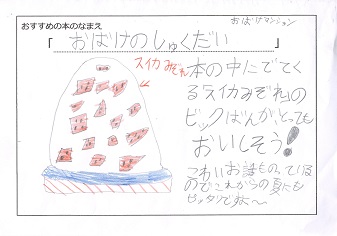 おばけマンション
おすすめの本のなまえ
「おばけのしゅくだい」
スイカみぞれ
本の中にでてく
る「スイカみぞれ」の
ビックばんが、とっても
おいしそう!
こわいお話ものっている
のでこれからの夏にも
ピッタリですよ〜